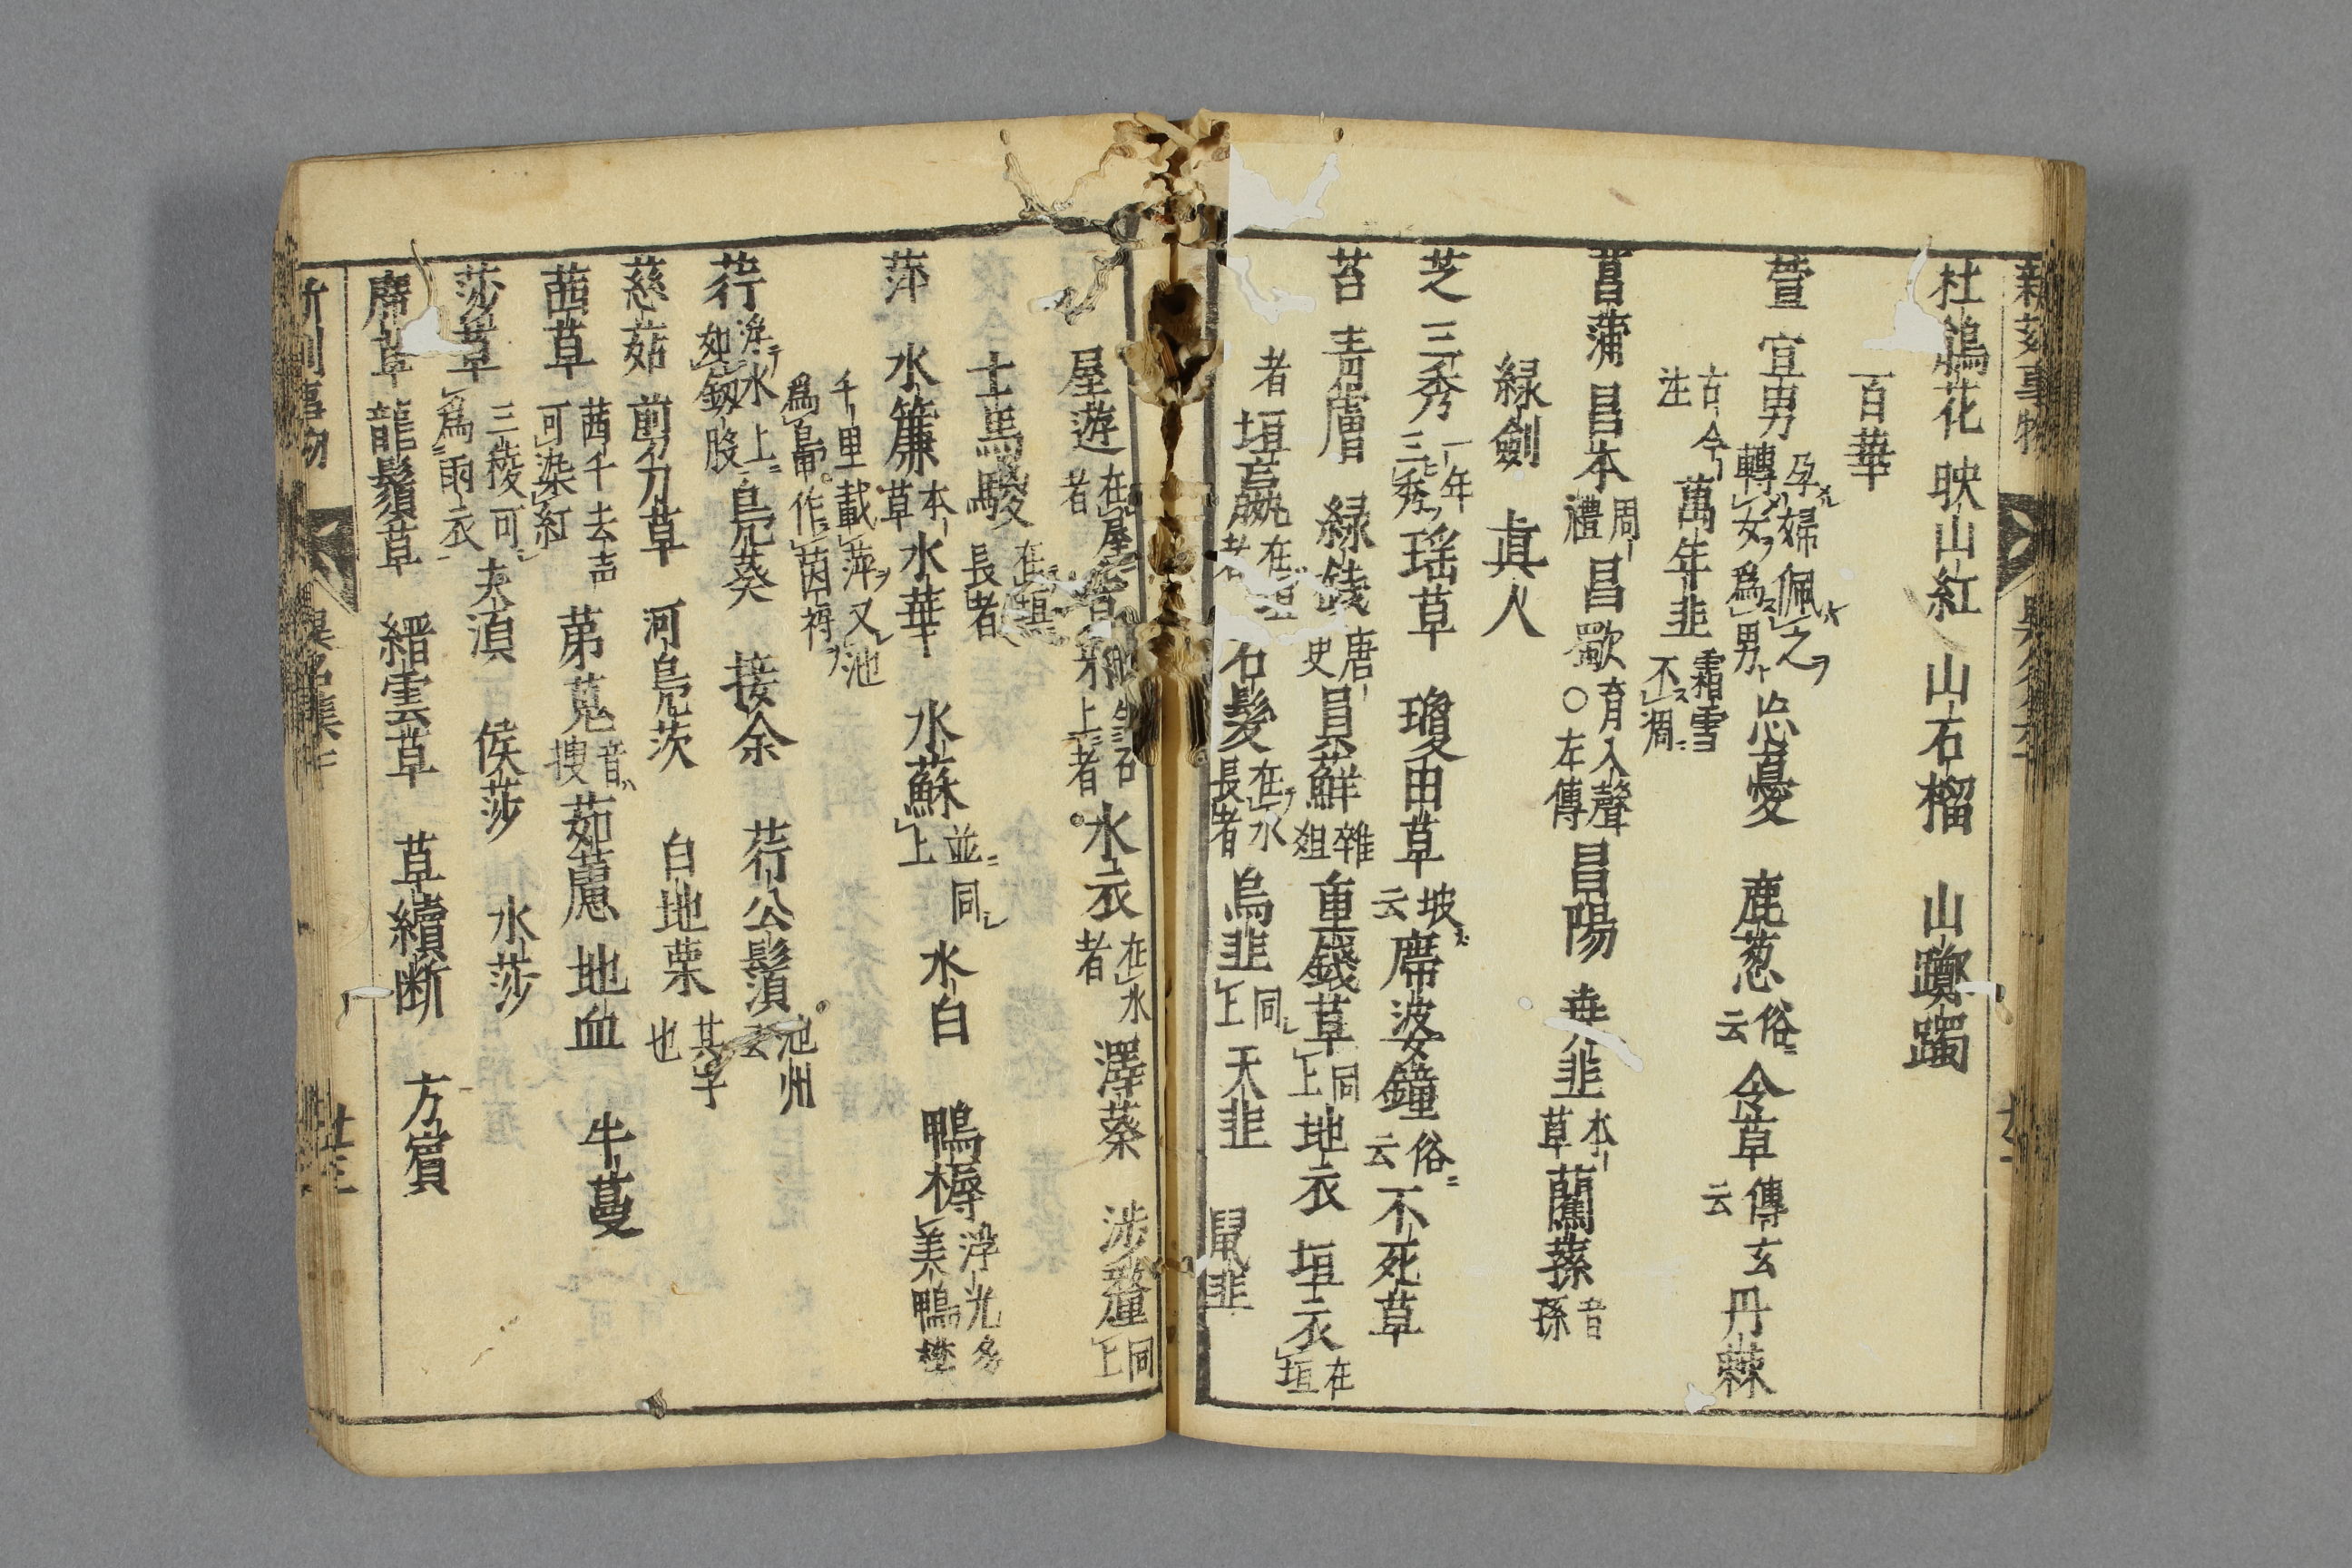 新刻事物
異名
杜鵑花 映山紅 山石榴 山躑躅
百華
萱 宜男 孕婦佩之轉女為男 忘憂 鹿葱 俗云 令草 傳云 玄丹棘
古今注 萬年韭 霜雪不凋
菖蒲 昌本 周禮 昌歜 育入聲○左傳 昌陽 尭韭 本草 蘭蓀 音孫
緑劍 真人
芝 三秀 一年三秀 瑶草 瓊田草 坡云 席波鐘 俗云 不死草
苔 青膚 緑錢 唐史 員蘚 雜俎 重錢草 同上 地衣 垣衣 在垣
者 垣嬴 在垣者 石髮 在水長者 烏韭 同上 天韭 鼠韭
屋遊 在屋者 昔邪 石上者 水衣 在水者 澤葵 涉釐 同上
土馬騣 在垣長者
萍 水簾 本草 水華 水蘇 並同上 水白 鴨褥 浮光多美鴨
千里載萍又池為鳧作茵褥
荇 浮水上如釵股 鳧葵 接余 荇公鬚 池州云
慈菇 剪刀草 河鳧茨 白地栗 其子也
茜草 茜千去声可染紅 蒐 音搜 茹藘 地血 牛蔓
莎草 三稜可為雨衣 夫湏 侯莎 水莎
席草 龍鬚草 縉雲草 草續断 方賓
新刻事物
異名集
廿三